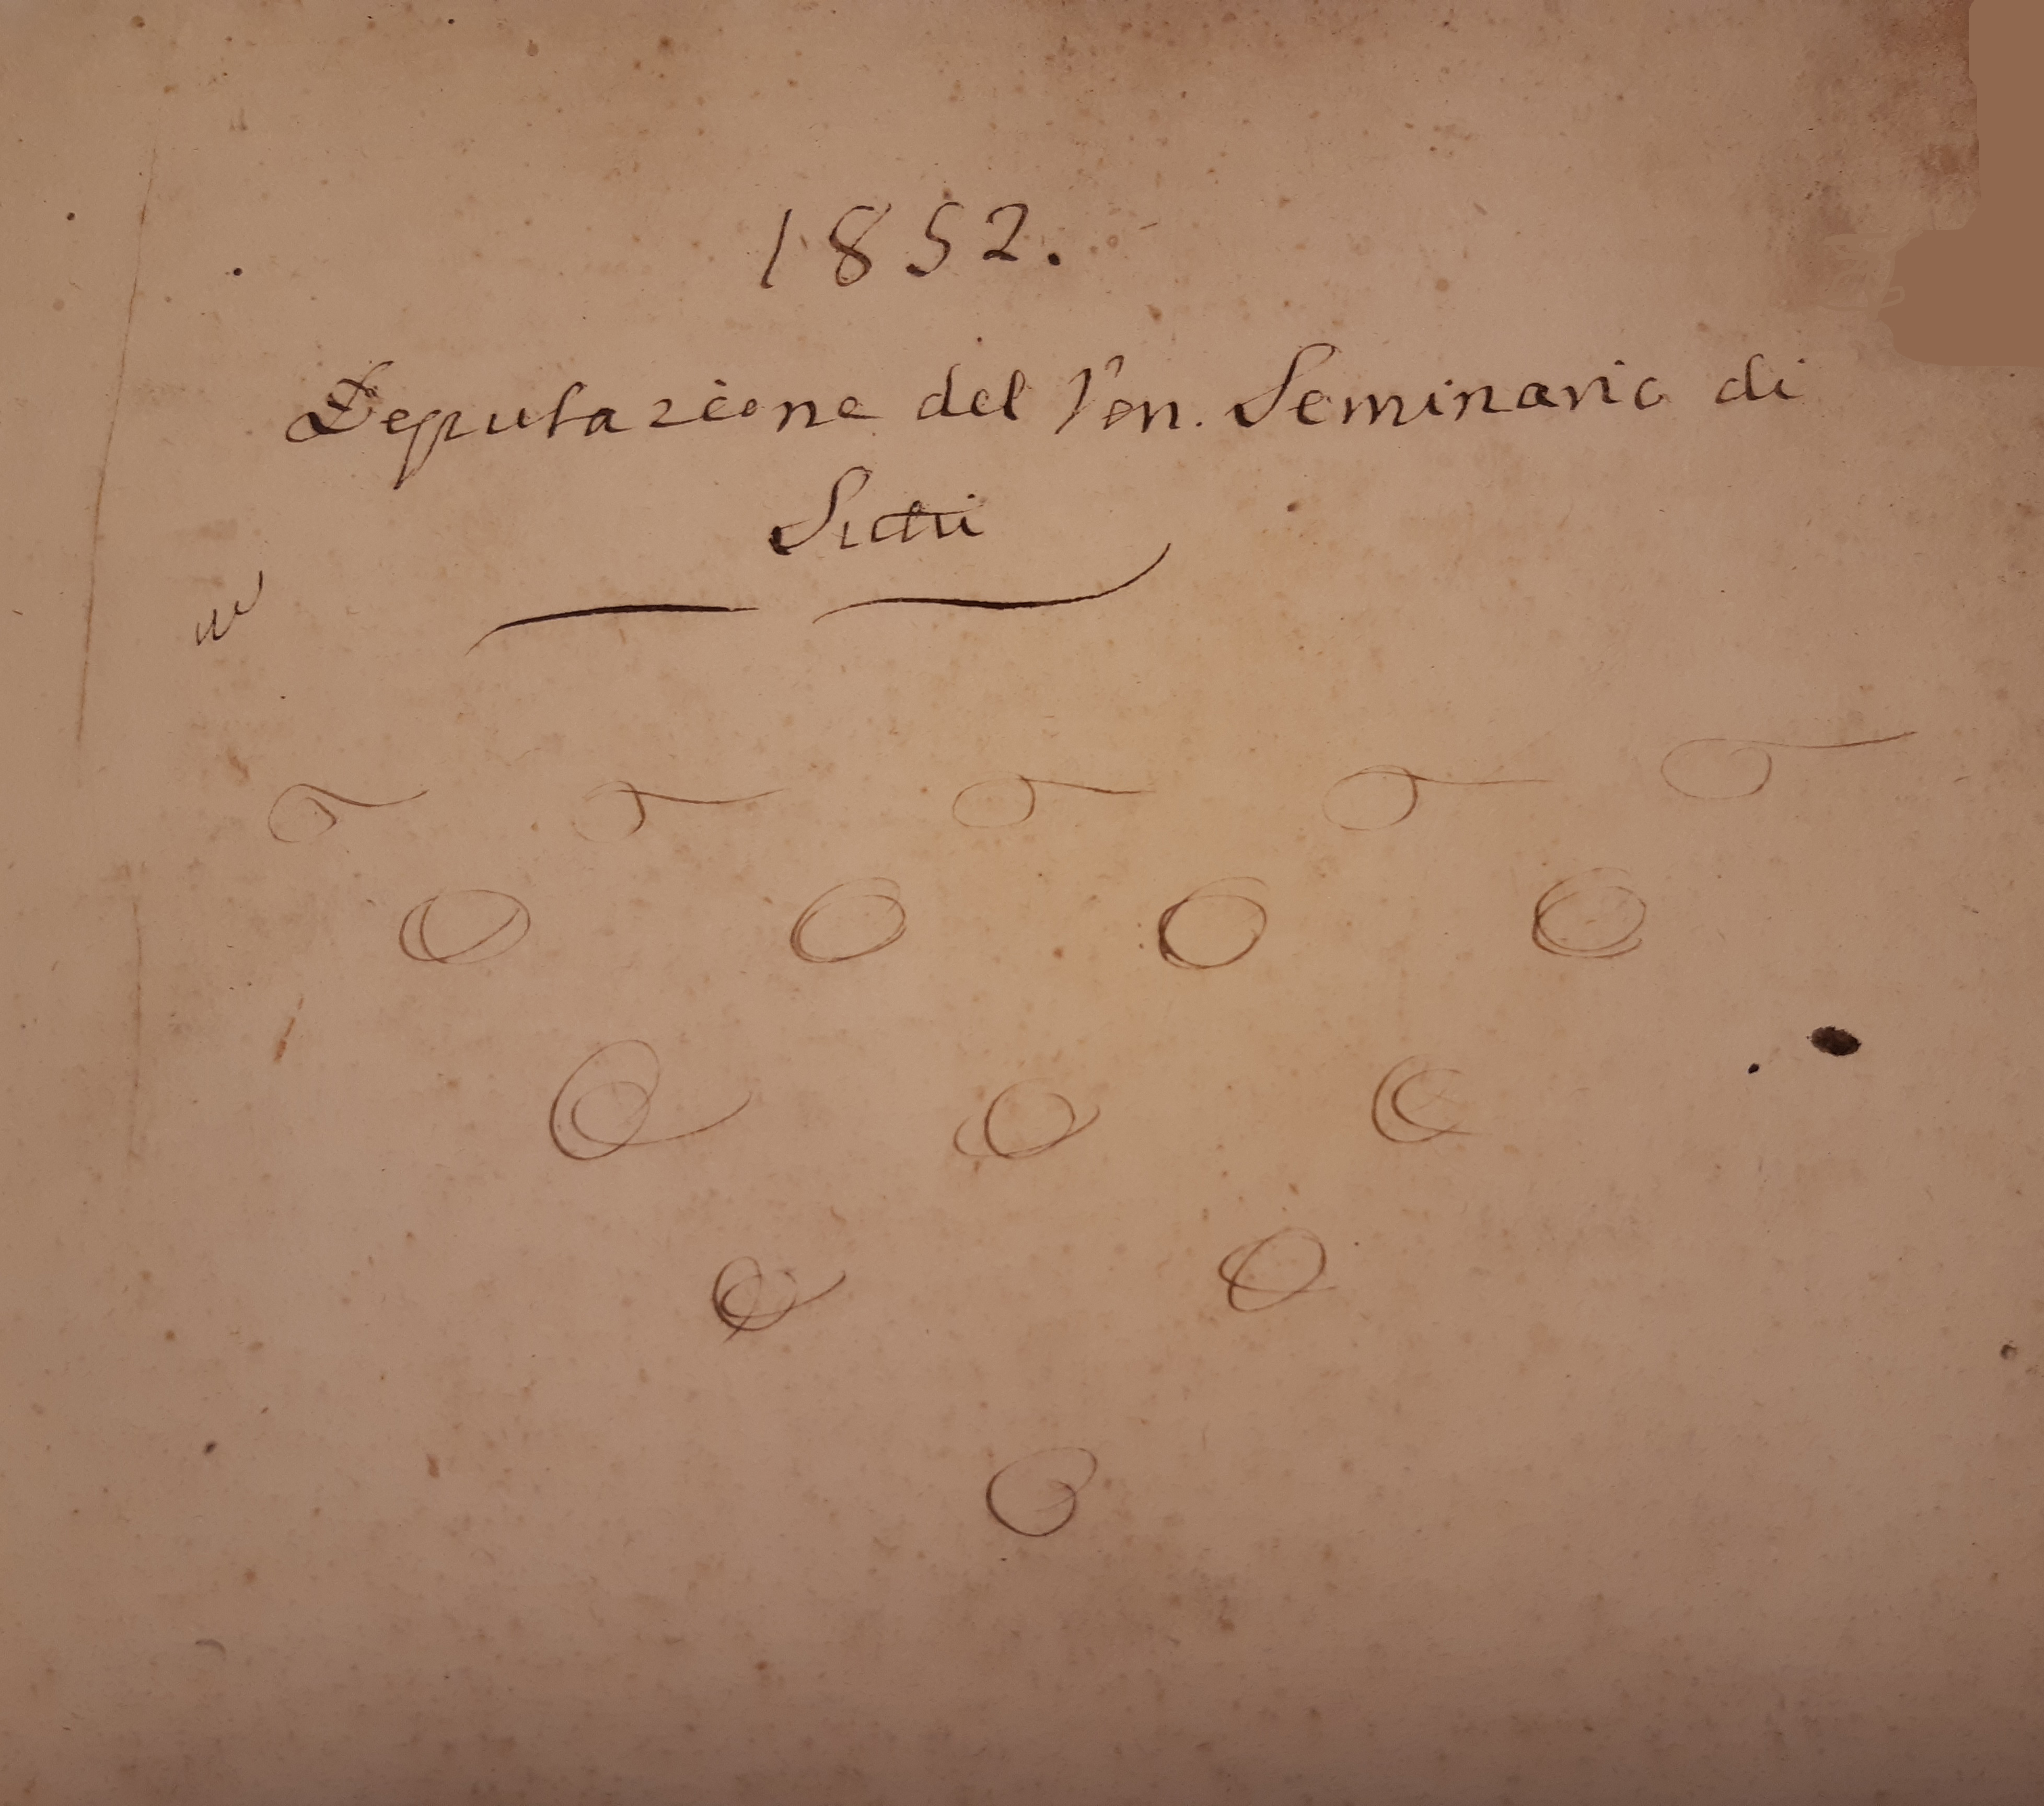 1852.
Deputazione del Ven. Seminario di
Sutri